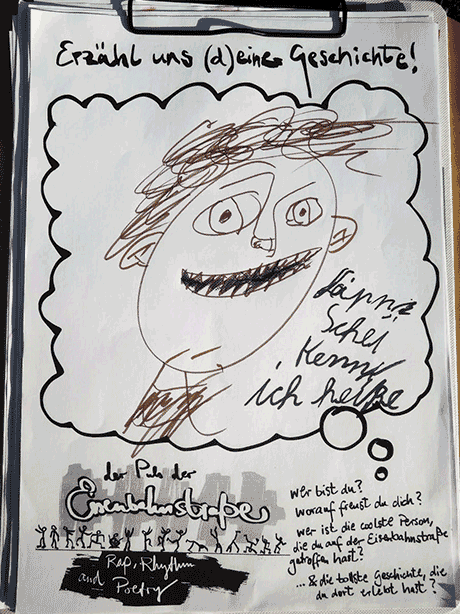 Erzähl uns (d)eine Geschichte!
Schei
Kenny
ich heiße
der Puls der
Eisenbahnstraße
Rap, Rhythm
and Poetry
wer bist du?
worauf freust du dich?
wer ist die coolste Person,
die du auf der Eisenbahnstraße
getroffen hast?
... & die tollste Geschichte, die
du dort erlebt hast?